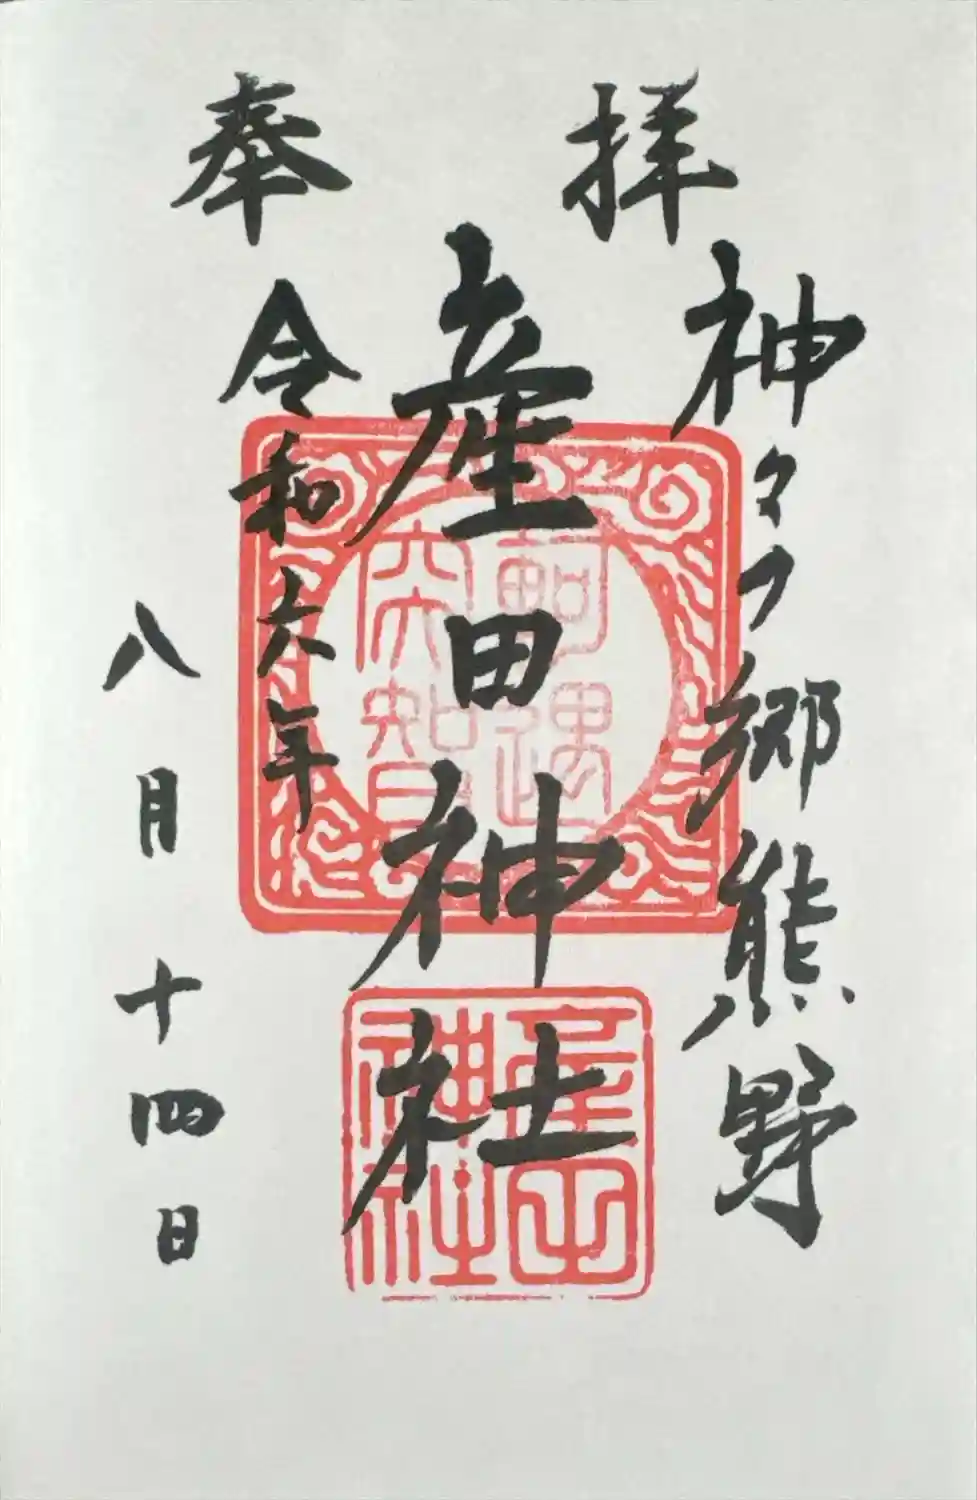 奉 拝
神々乃郷熊野
産田神社
令和六年
八月十四日
軻遇
突智
産田
神社